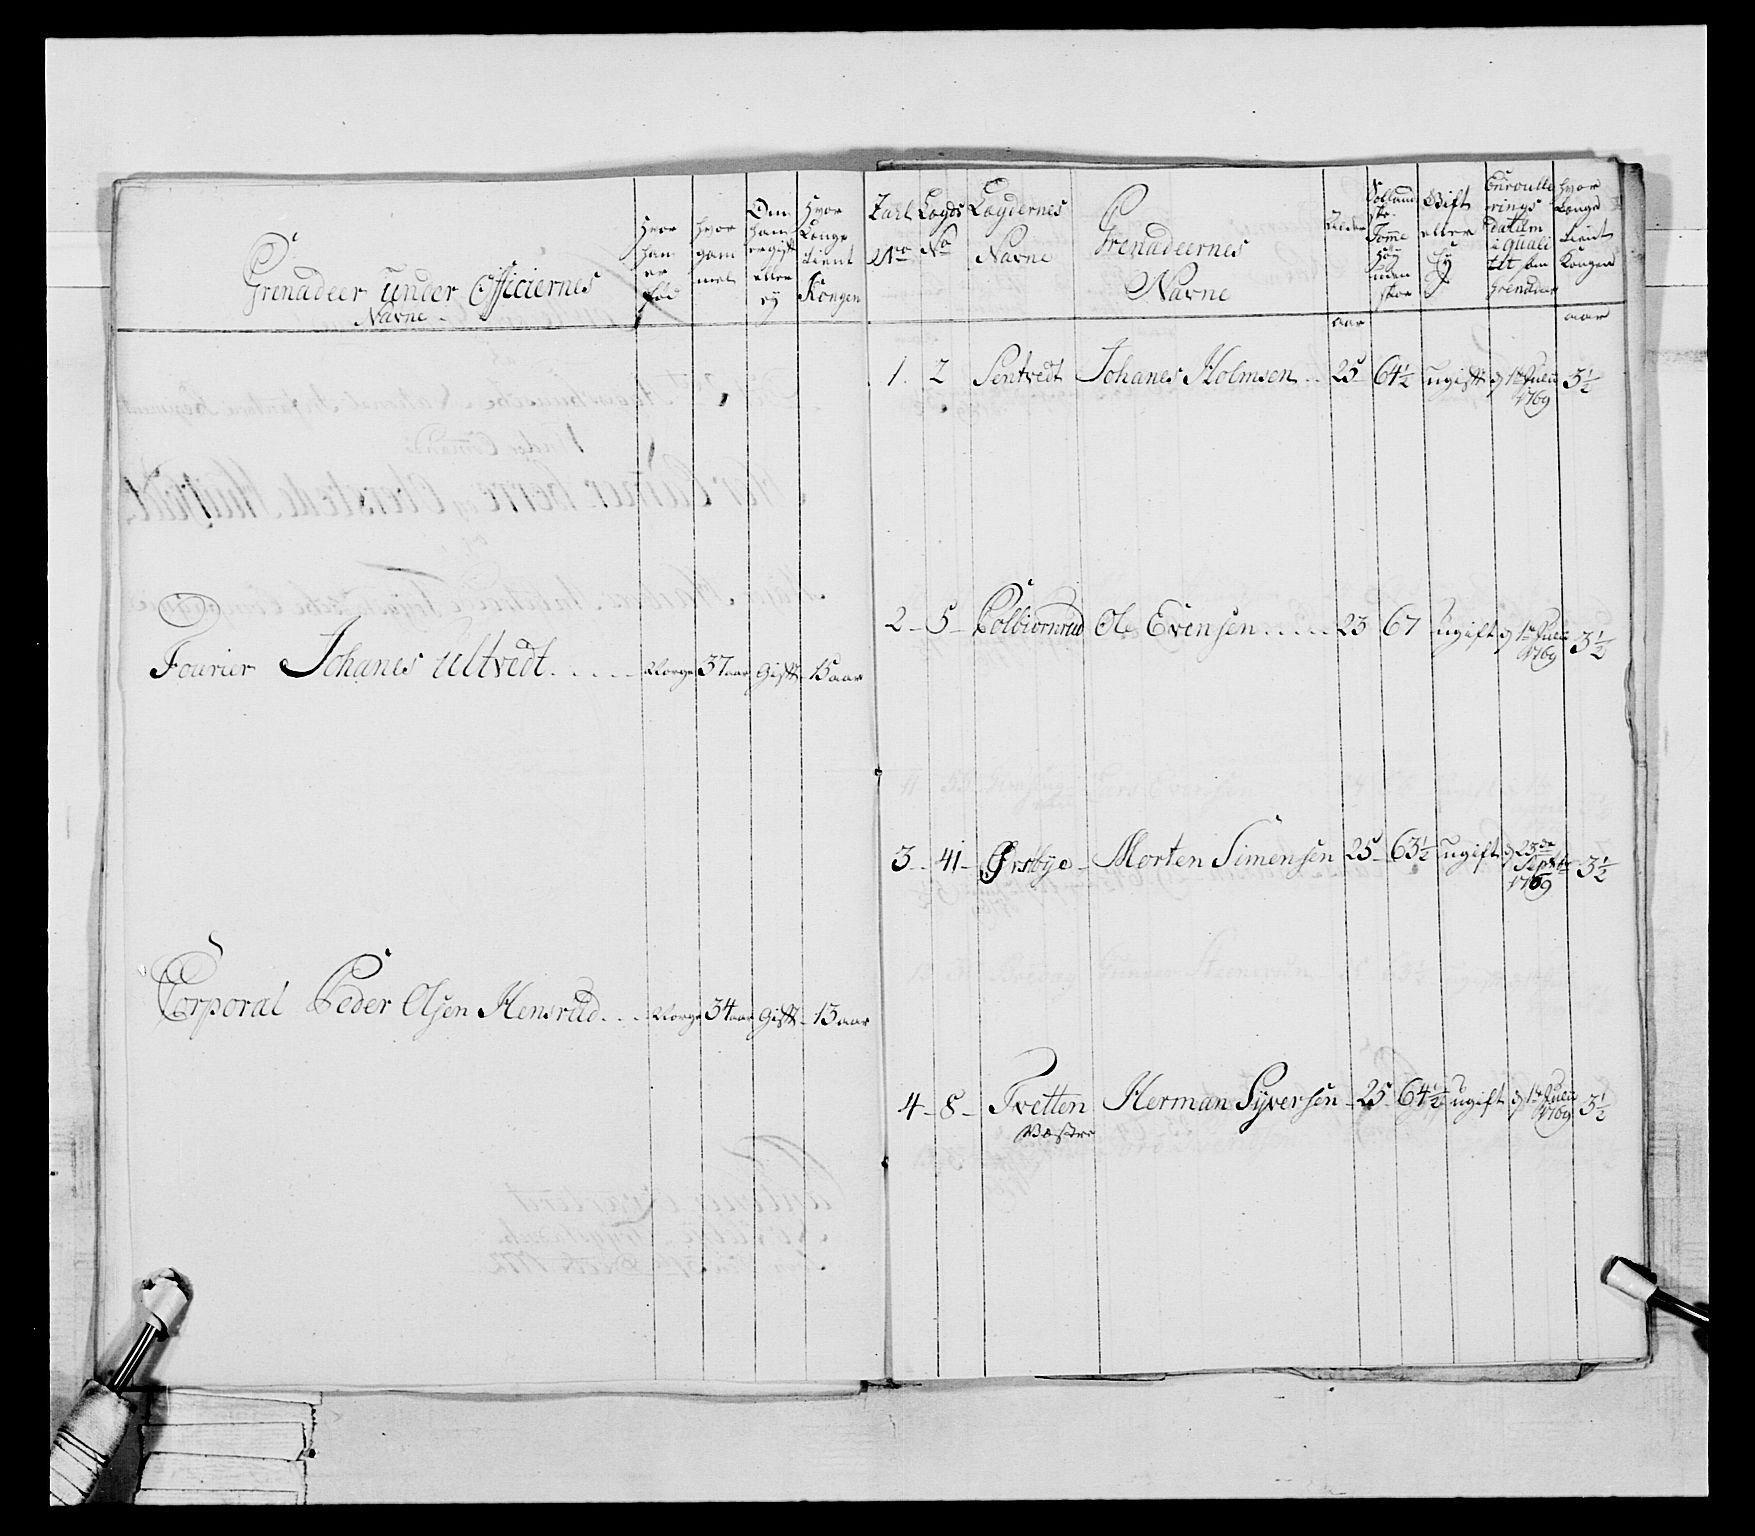 Grenadeer under Officiernes
Navne
hvor
han
er
fød
hvor
gam
mel
Om
han
er gift
eller
ey
hvor
Længe
tient
Kongen
Fourier Johanes Ultvedt Norge 37 aar Gift 15 aar
Corporal Peder Olsen Hensrud Norge 34 aar Gift 13 aar
Tahl
No
Lægds
No
Lægdernes
Navne
Grenadeernes
Navne
Alder
aar
Tomme
høy
uden
skoe
Gift
eller
Ey
Enroulle
rings
datum
i quali
tet som
Grenadeer
hvor
Længe
tient
Kongen
aar
1. 2 Sentvedt Johanes Holmsen 25 64½ ugift d 1te Julii 1769 3½
2 5 Colbiornrud Ole Evensen 23 67 ugift d 1te Julii 1769 3½
3 41 Ørsbye Morten Simensen 25 63½ ugift d 23de Septbr 1769 3½
4 8 Tvetten Herman Syversen 25 64½ ugift d 1te Julii 1769 3½
Væstre